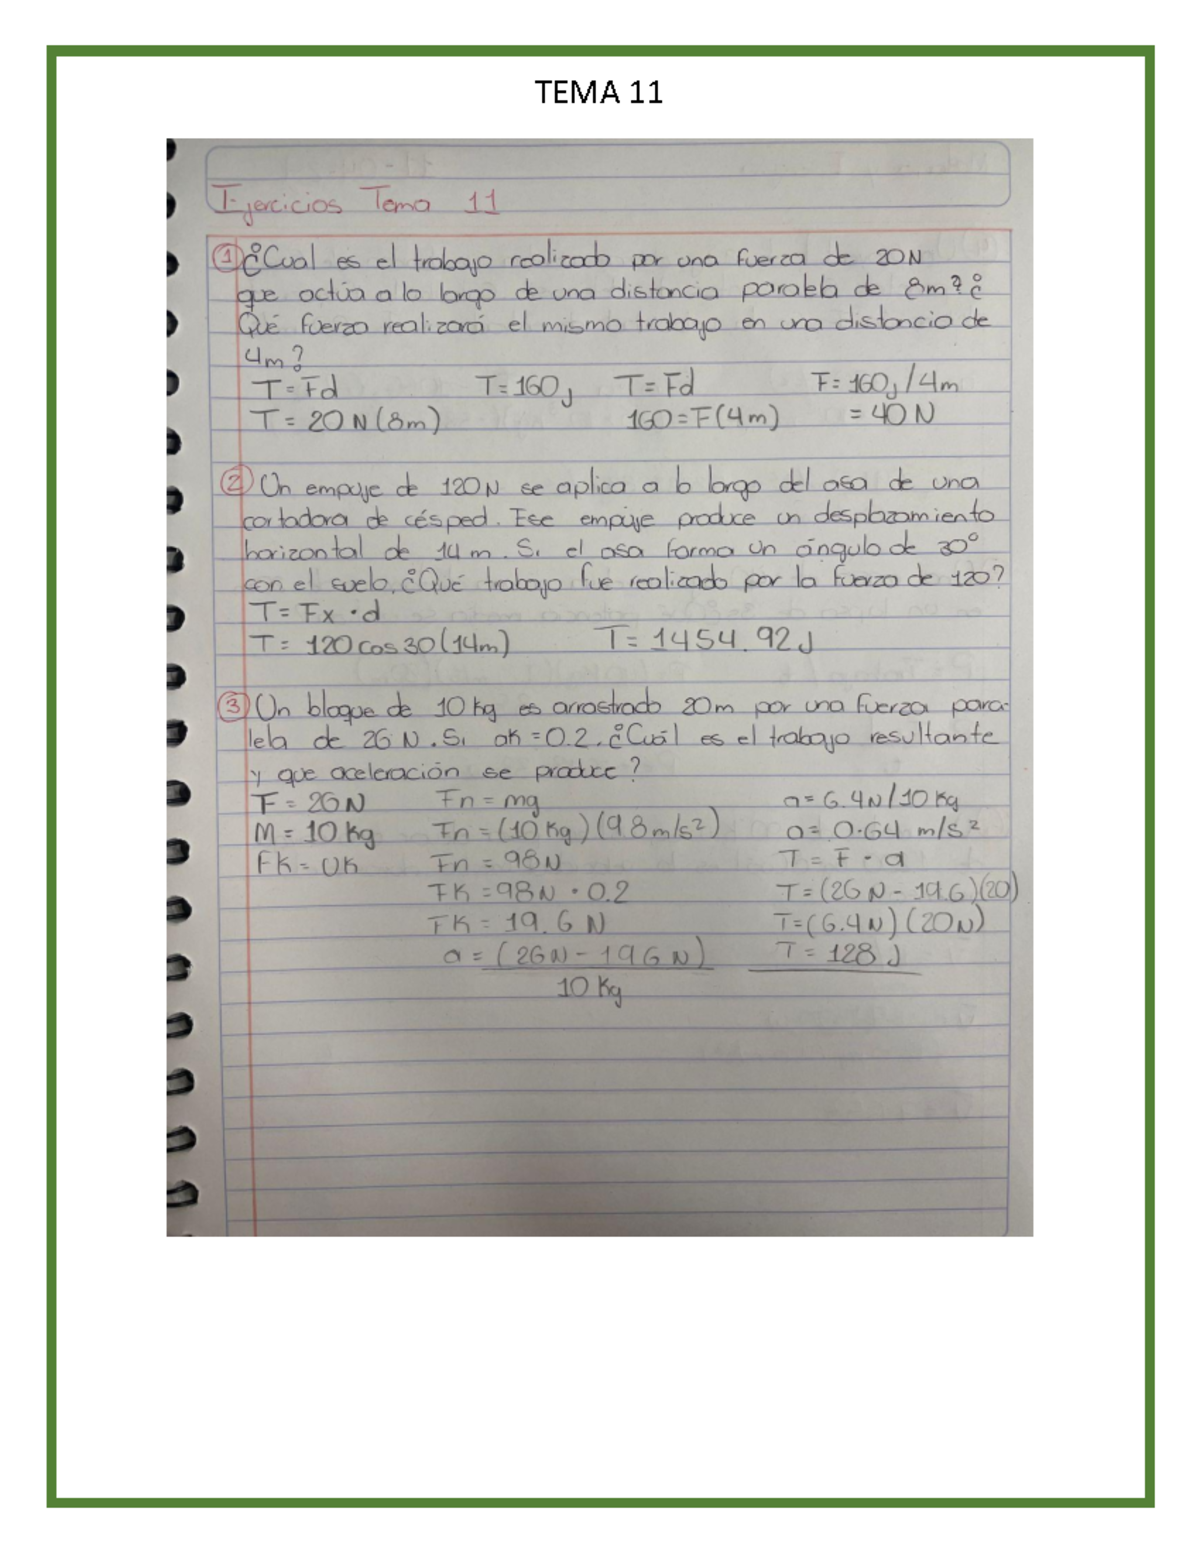 TEMA 11
Ejercicios Tema 11
① ¿Cual es el trabajo realizado por una fuerza de 20N
que actúa a lo largo de una distancia paralela de 8m? ¿
Qué fuerza realizará el mismo trabajo en una distancia de
4m?
T = Fd T = 160 J T = Fd F = 160 J / 4m
T = 20 N (8m) 160 = F (4m) = 40 N
② Un empuje de 120N se aplica a lo largo del asa de una
cortadora de césped. Ese empuje produce un desplazamiento
horizontal de 14 m. Si el asa forma un ángulo de 30°
con el suelo. ¿Qué trabajo fue realizado por la fuerza de 120?
T = Fx • d
T = 120 cos 30 (14m) T = 1454.92 J
③ Un bloque de 10 kg es arrastrado 20m por una fuerza para-
lela de 26 N. Si αK = 0.2. ¿Cuál es el trabajo resultante
y que aceleración se produce?
F = 26 N Fn = mg a = 6.4N / 10 kg
M = 10 kg Fn = (10 kg) (9.8 m/s²) a = 0.64 m/s²
FK = UK Fn = 98N T = F • d
FK = 98N • 0.2 T = (26 N - 19.6) (20)
FK = 19.6 N T = (6.4 N) (20N)
a = (26N - 19.6 N) T = 128 J
10 Kg